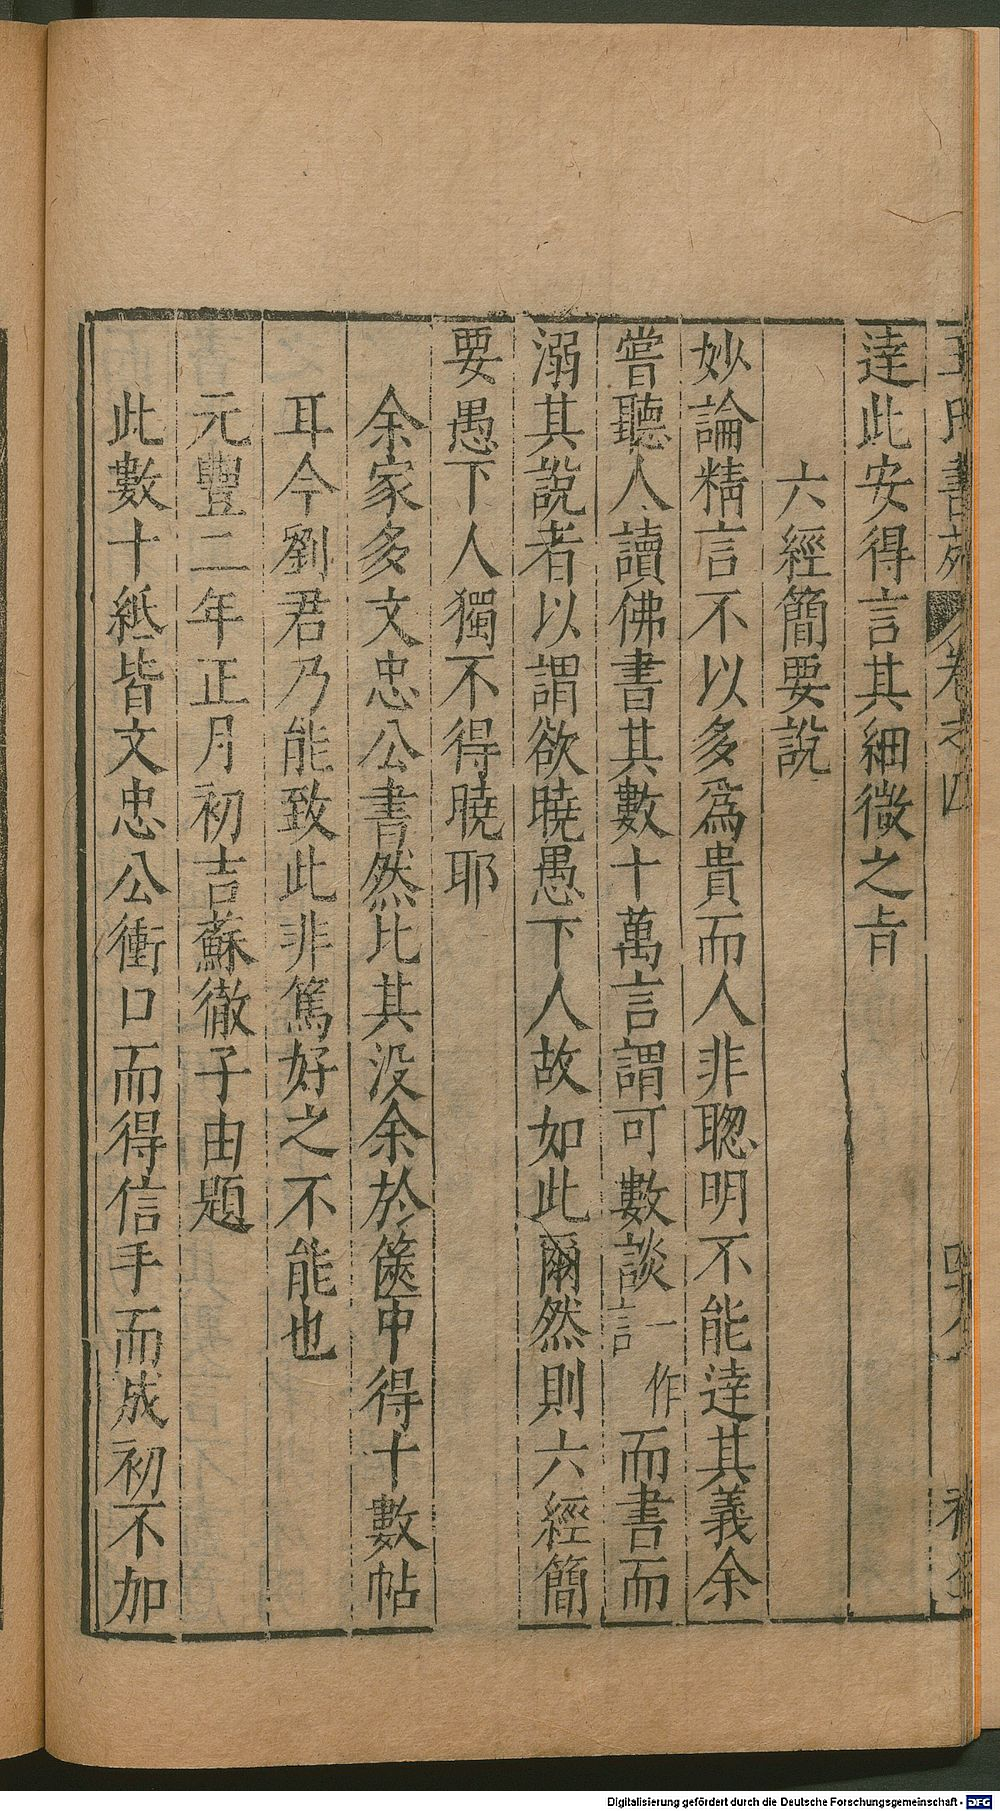 王氏書苑 卷之四
達此安得言其細微之旨
六經簡要說
妙論精言不以多爲貴而人非聦明不能達其義余
嘗聽人讀佛書其數十萬言謂可數談一作言而書而
溺其說者以謂欲曉愚下人故如此爾然則六經簡
要愚下人獨不得曉耶
余家多文忠公書然比其没余於篋中得十數帖
耳今劉君乃能致此非篤好之不能也
元豐二年正月初吉蘇徹子由題
此數十紙皆文忠公衝口而得信手而成初不加
Digitalisierung gefördert durch die Deutsche Forschungsgemeinschaft - DFG